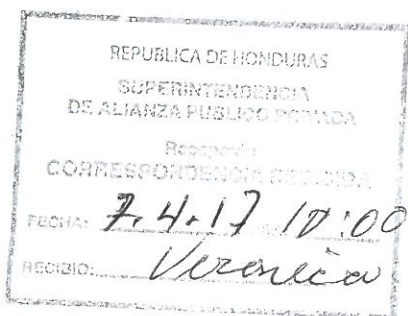 REPUBLICA DE HONDURAS
SUPERINTENDENCIA
DE ALIANZA PUBLICO PRIVADA
Recepción
CORRESPONDENCIA RECIBIDA
FECHA: 7.4.17 10:00
RECIBIO: Veronica